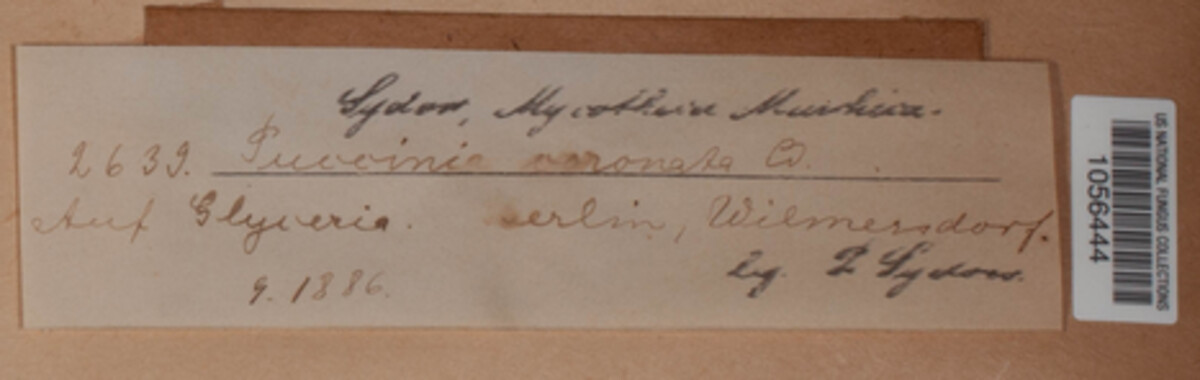 Sydow, Mycotheca Marchica.
2639. Puccinia coronata Cd.
Auf Glyceria. Berlin, Wilmersdorf.
9. 1886. leg. P Sydow.
US NATIONAL FUNGUS COLLECTIONS
1056444